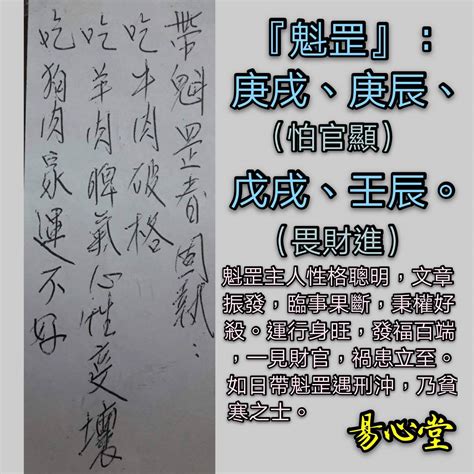 帶魁罡者固執：
吃牛肉破格
吃羊肉脾氣心性變壞
吃狗肉家運不好
『魁罡』：
庚戌、庚辰、
（怕官顯）
戊戌、壬辰。
（畏財進）
魁罡主人性格聰明，文章
振發，臨事果斷，秉權好
殺。運行身旺，發福百端
，一見財官，禍患立至。
如日帶魁罡遇刑沖，乃貧
寒之士。
易心堂